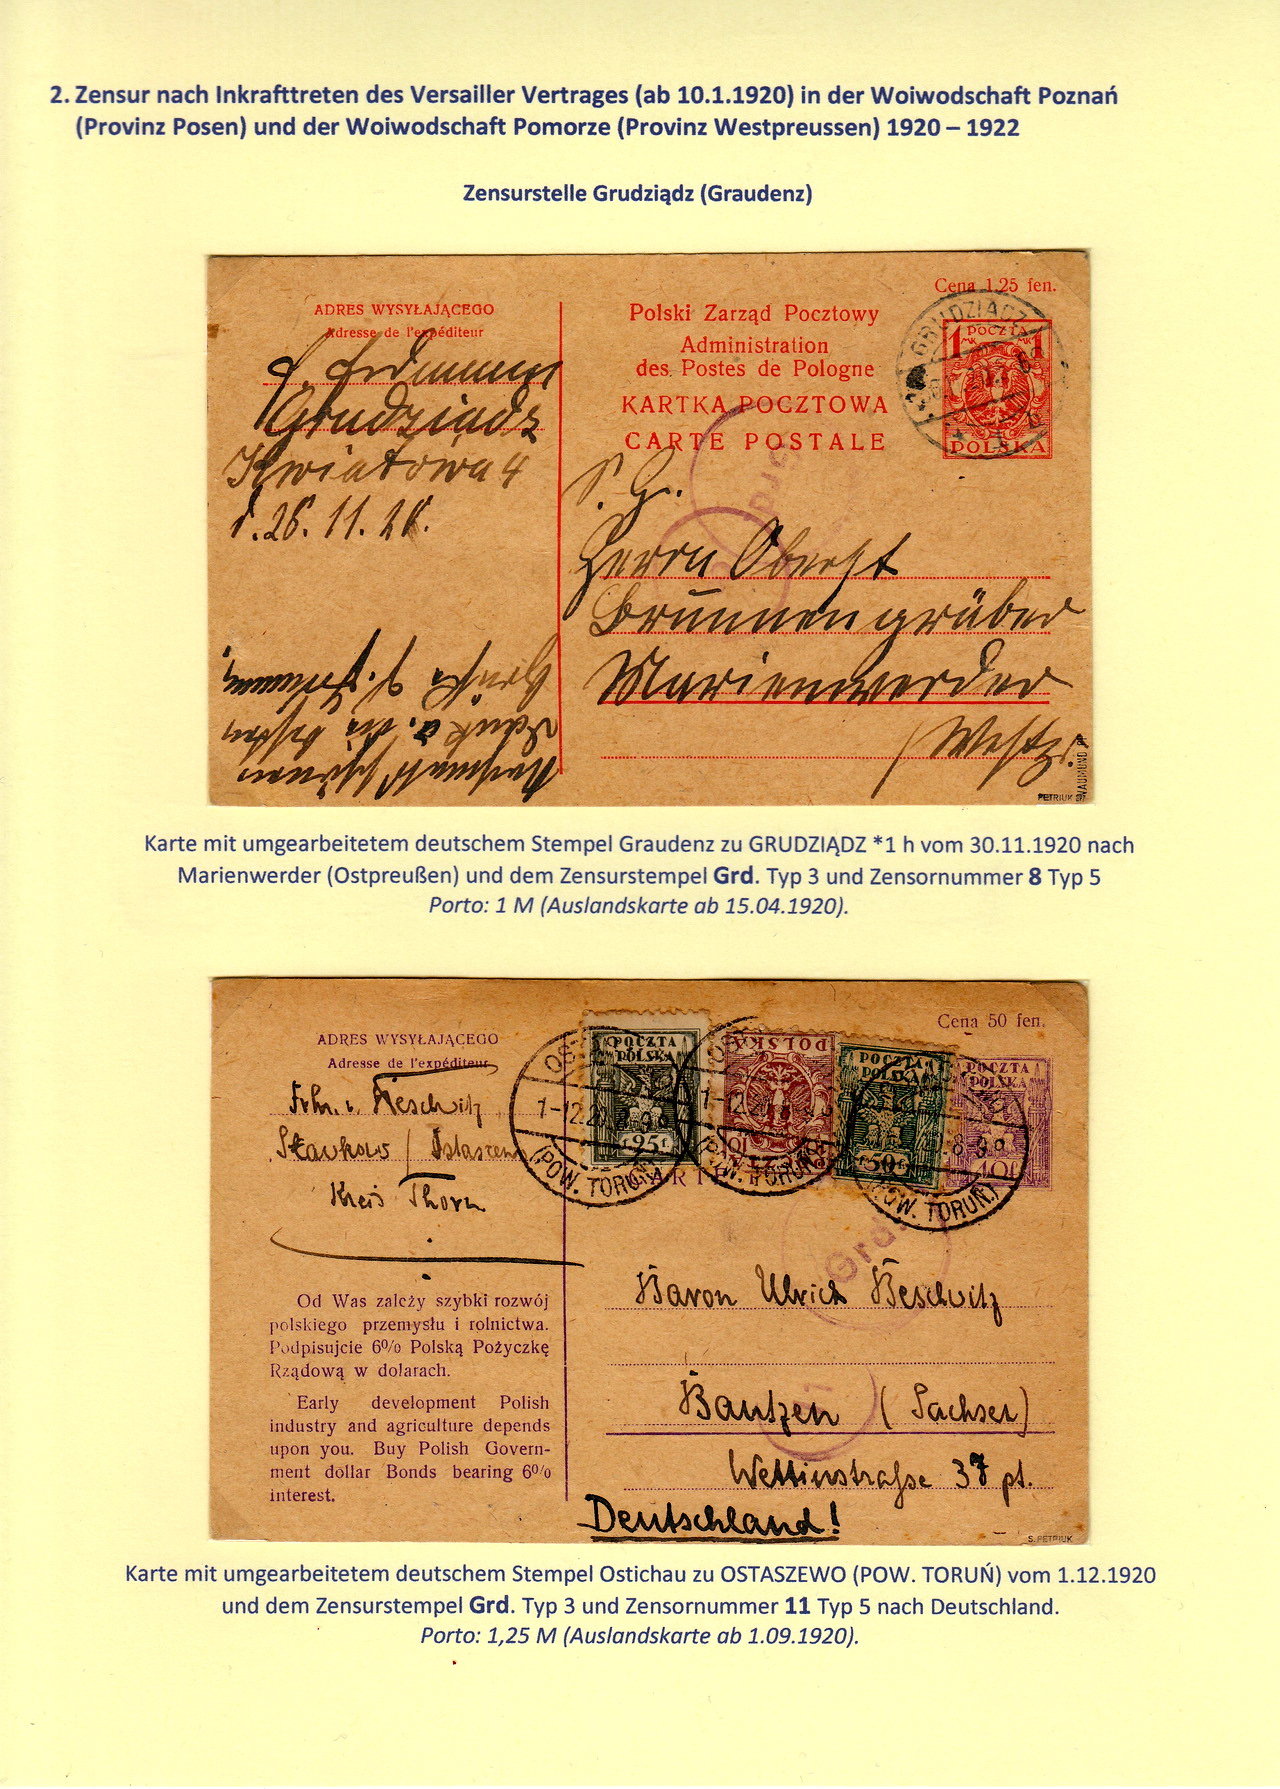 2. Zensur nach Inkrafttreten des Versailler Vertrages (ab 10.1.1920) in der Woiwodschaft Poznań
(Provinz Posen) und der Woiwodschaft Pomorze (Provinz Westpreussen) 1920 – 1922
Zensurstelle Grudziądz (Graudenz)
Cena 1,25 fen.
ADRES WYSYŁAJĄCEGO
Adresse de l'expéditeur
Polski Zarząd Pocztowy
Administration
des Postes de Pologne
KARTKA POCZTOWA
CARTE POSTALE
GRUDZIĄDZ
POCZTA
1 MK 1 MK
POLSKA
Grd
Erdmann
Grudziadz
Kwiatowa 4
d. 26. 11. 20.
S. H.
Herrn Oberst
Brunnengräber
Marienwerder
Westpr.
PETRIUK
Karte mit umgearbeitetem deutschem Stempel Graudenz zu GRUDZIĄDZ *1 h vom 30.11.1920 nach
Marienwerder (Ostpreußen) und dem Zensurstempel Grd. Typ 3 und Zensornummer 8 Typ 5
Porto: 1 M (Auslandskarte ab 15.04.1920).
Cena 50 fen.
ADRES WYSYŁAJĄCEGO
Adresse de l'expéditeur
POCZTA
POLSKA
25f
POCZTA
POLSKA
50f
POCZTA
POLSKA
40f
1-12.20 8-9
(POW. TORUŃ)
Frhr. v. Beschwitz
Kreis Thorn
Grd.
11
Od Was zależy szybki rozwój
polskiego przemysłu i rolnictwa.
Podpisujcie 6% Polską Pożyczkę
Rządową w dolarach.
Early development Polish
industry and agriculture depends
upon you. Buy Polish Govern-
ment dollar Bonds bearing 6%
interest.
Baron Ulrich Beschwitz
Bautzen (Sachsen)
Wettinstraße 37 pt.
Deutschland!
S. PETRIUK
Karte mit umgearbeitetem deutschem Stempel Ostichau zu OSTASZEWO (POW. TORUŃ) vom 1.12.1920
und dem Zensurstempel Grd. Typ 3 und Zensornummer 11 Typ 5 nach Deutschland.
Porto: 1,25 M (Auslandskarte ab 1.09.1920).